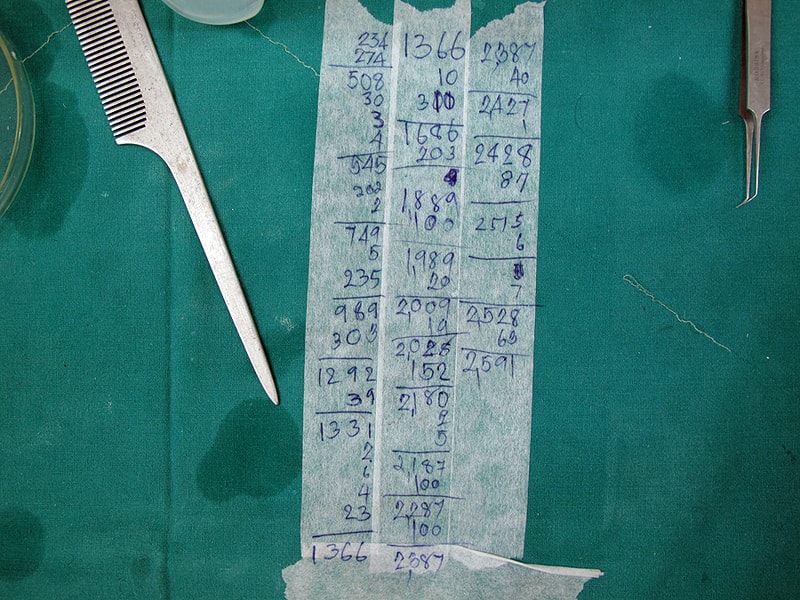 234
274
508
30
3
4
545
202
2
749
5
235
989
303
1292
39
1331
2
6
4
23
1366
1366
10
310
1686
203
1,889
100
1,989
20
2,009
19
2,028
152
2,180
2
5
2,187
100
2,287
100
2,387
2,387
40
2,427
1
2428
87
2515
6
7
2,528
63
2,591